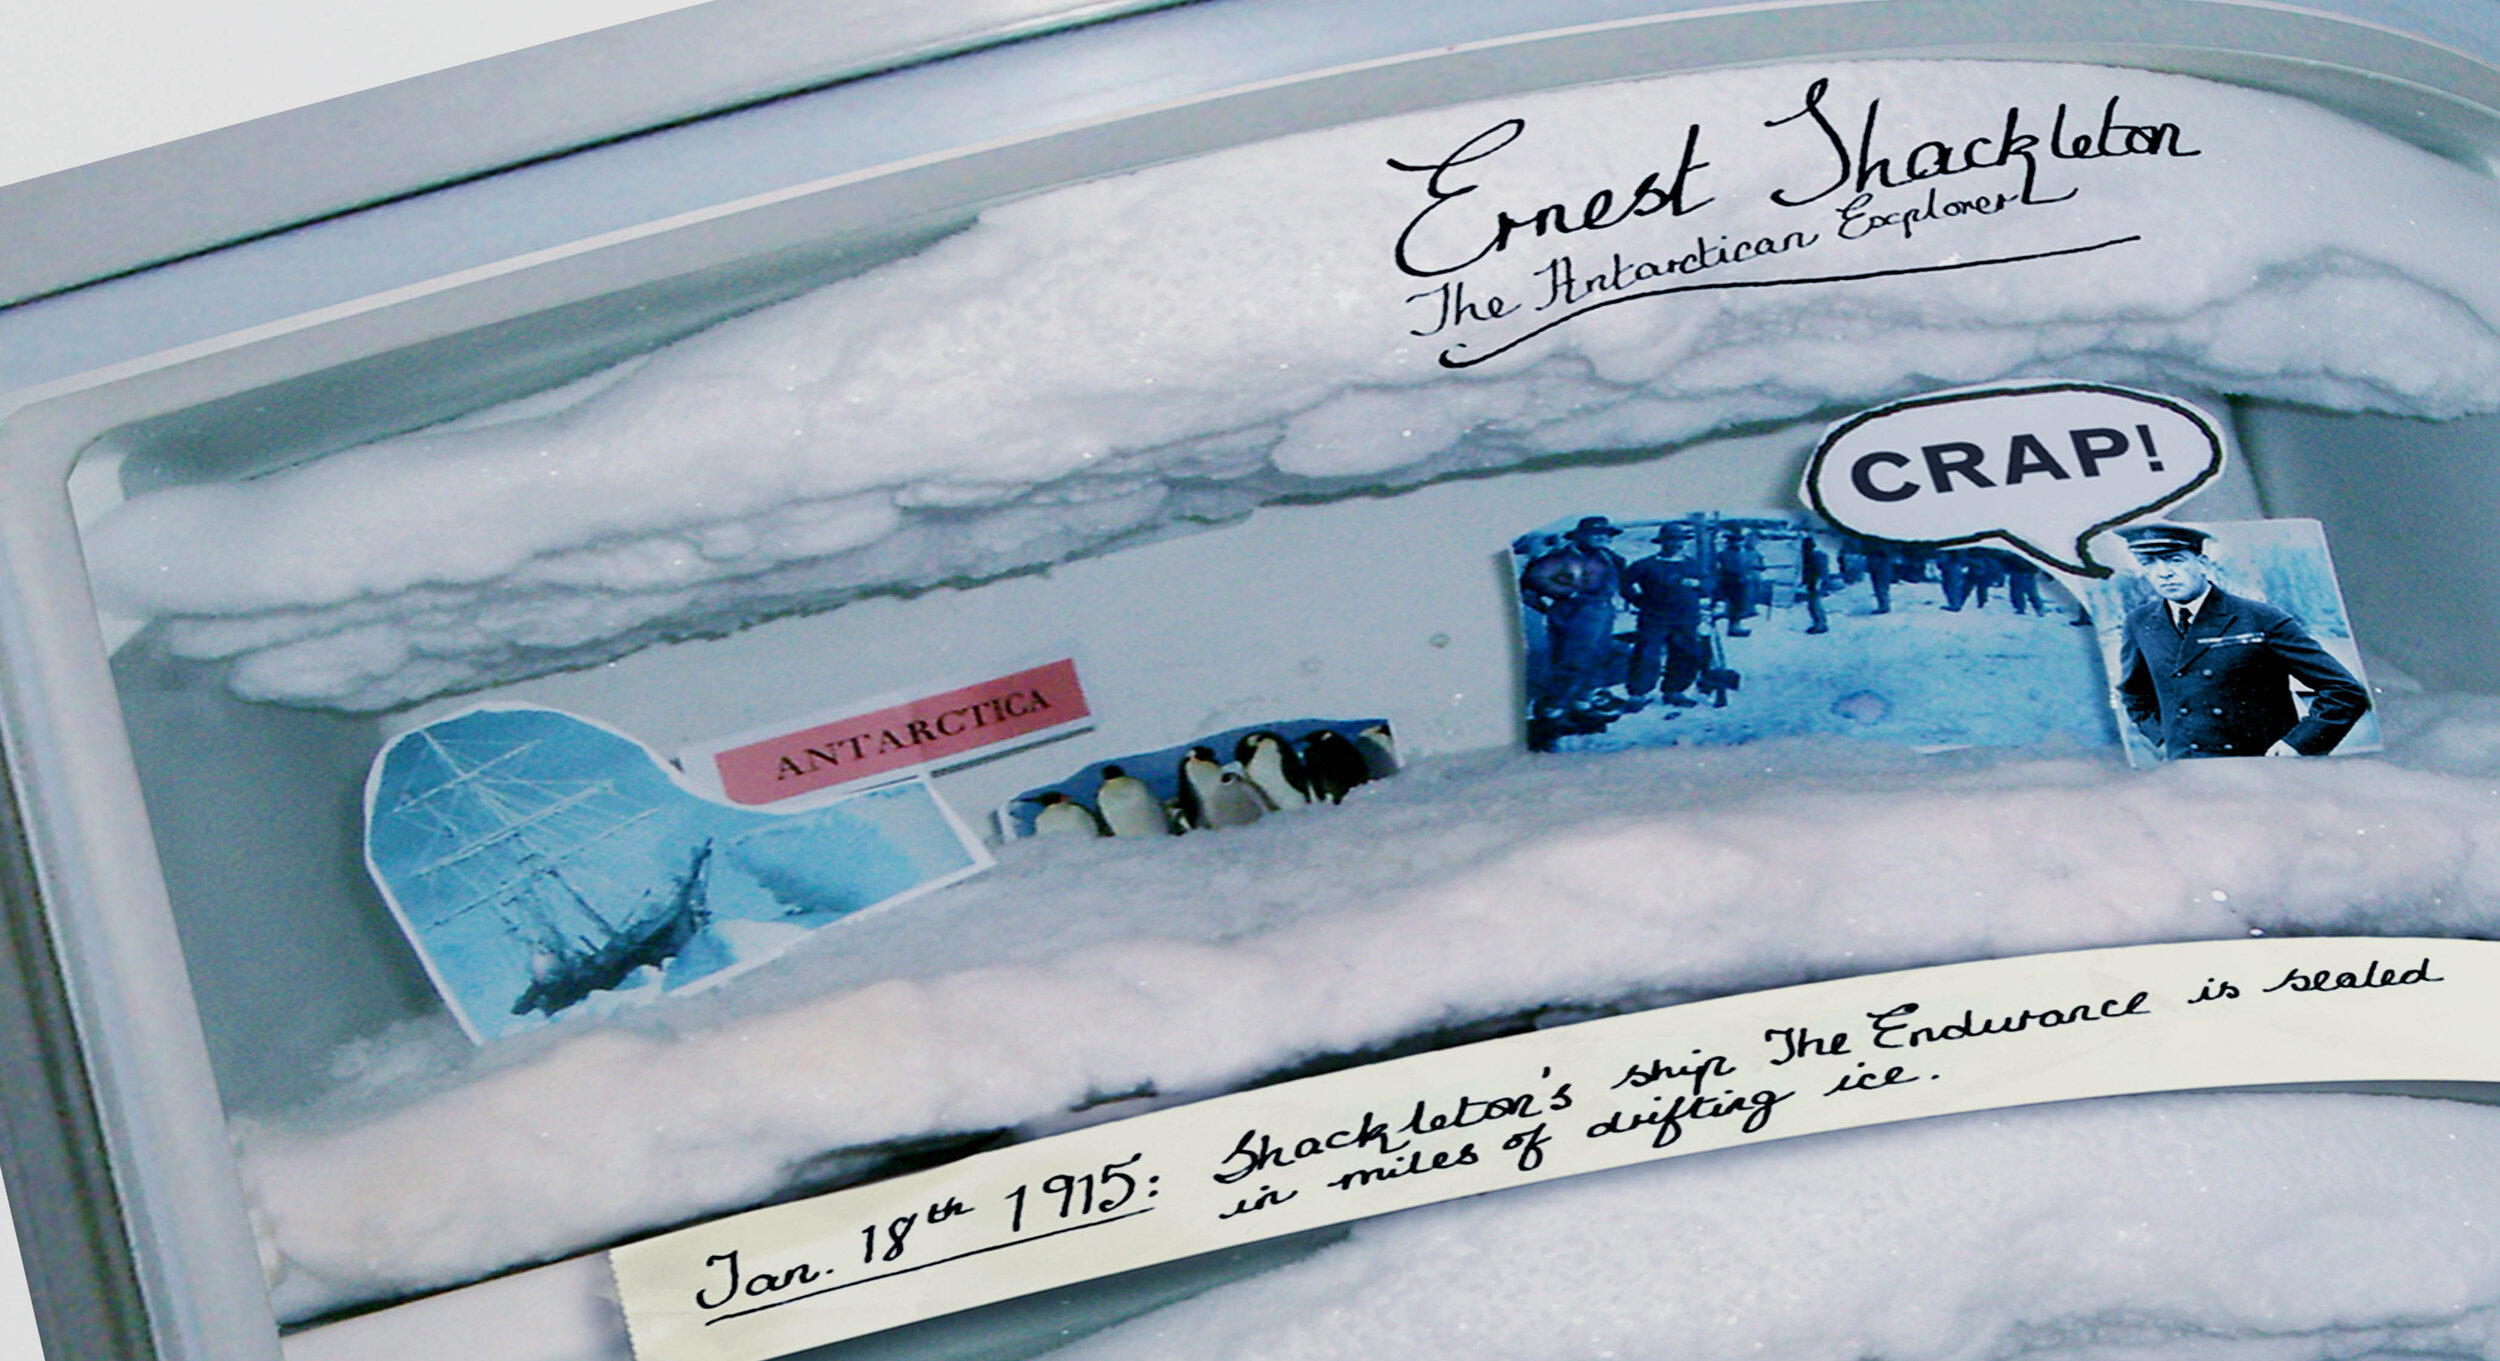 Ernest Shackleton
The Antarctican Explorer
CRAP!
ANTARCTICA
Jan. 18th 1915: Shackleton's ship The Endurance is sealed
in miles of drifting ice.